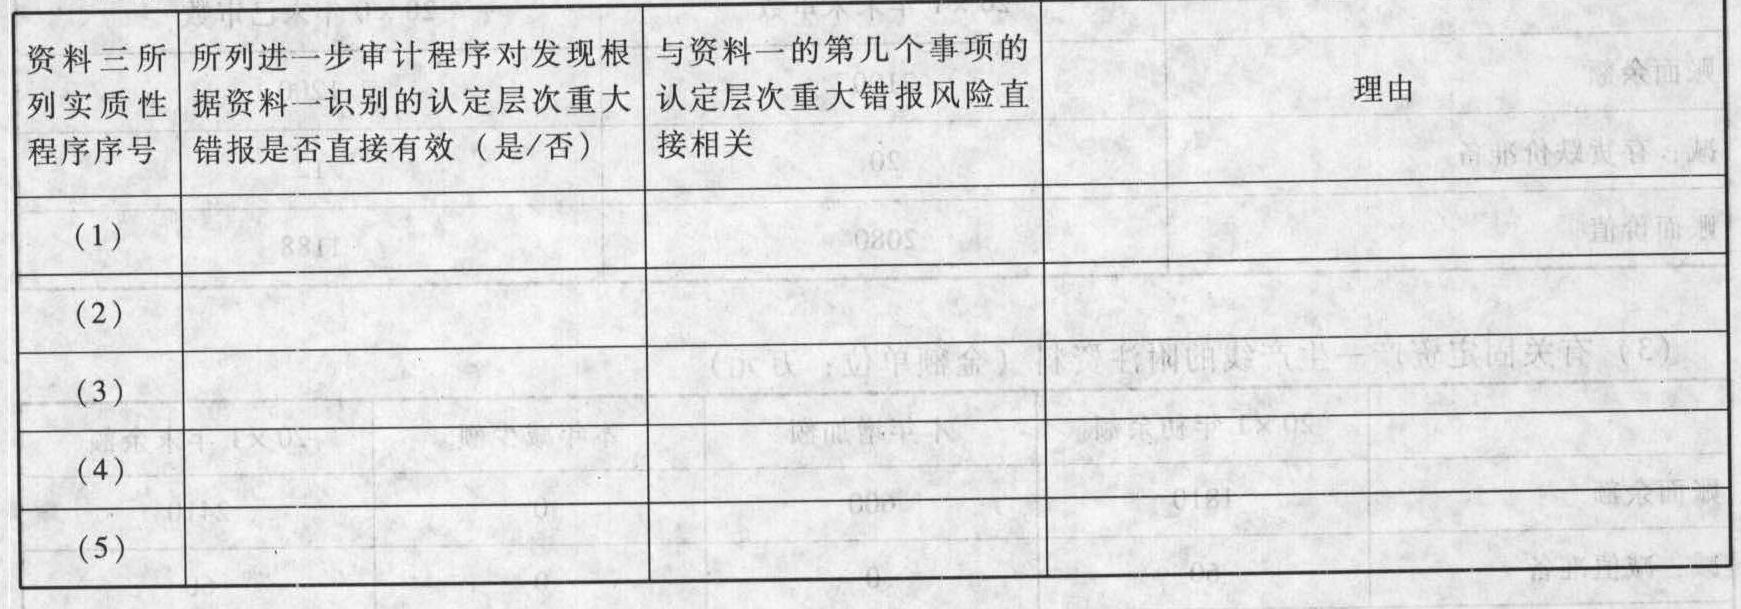 资料三所
列实质性
程序序号
所列进一步审计程序对发现根
据资料一识别的认定层次重大
错报是否直接有效（是/否）
与资料一的第几个事项的
认定层次重大错报风险直
接相关
理由
（1）
（2）
（3）
（4）
（5）